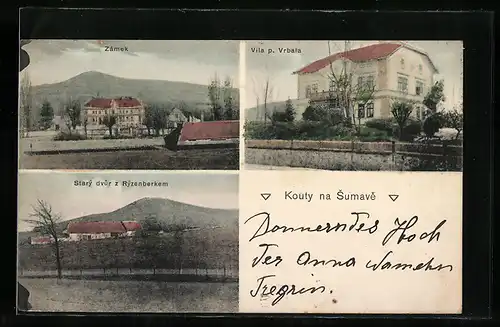 Zámek
Vila p. Vrbaťa
Starý dvůr z Rýzenberkem
Kouty na Šumavě
Donnerndes Hoch
Der Anna